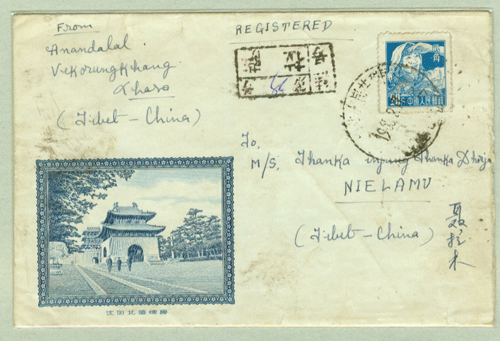 From
Anandalal
Vekorungkhang
Lhasa
(Tibet-China)
REGISTERED
To,
M/S, Thanka Dhoja
NIELAMU
(Tibet-China)
聂拉木
中国人民邮政